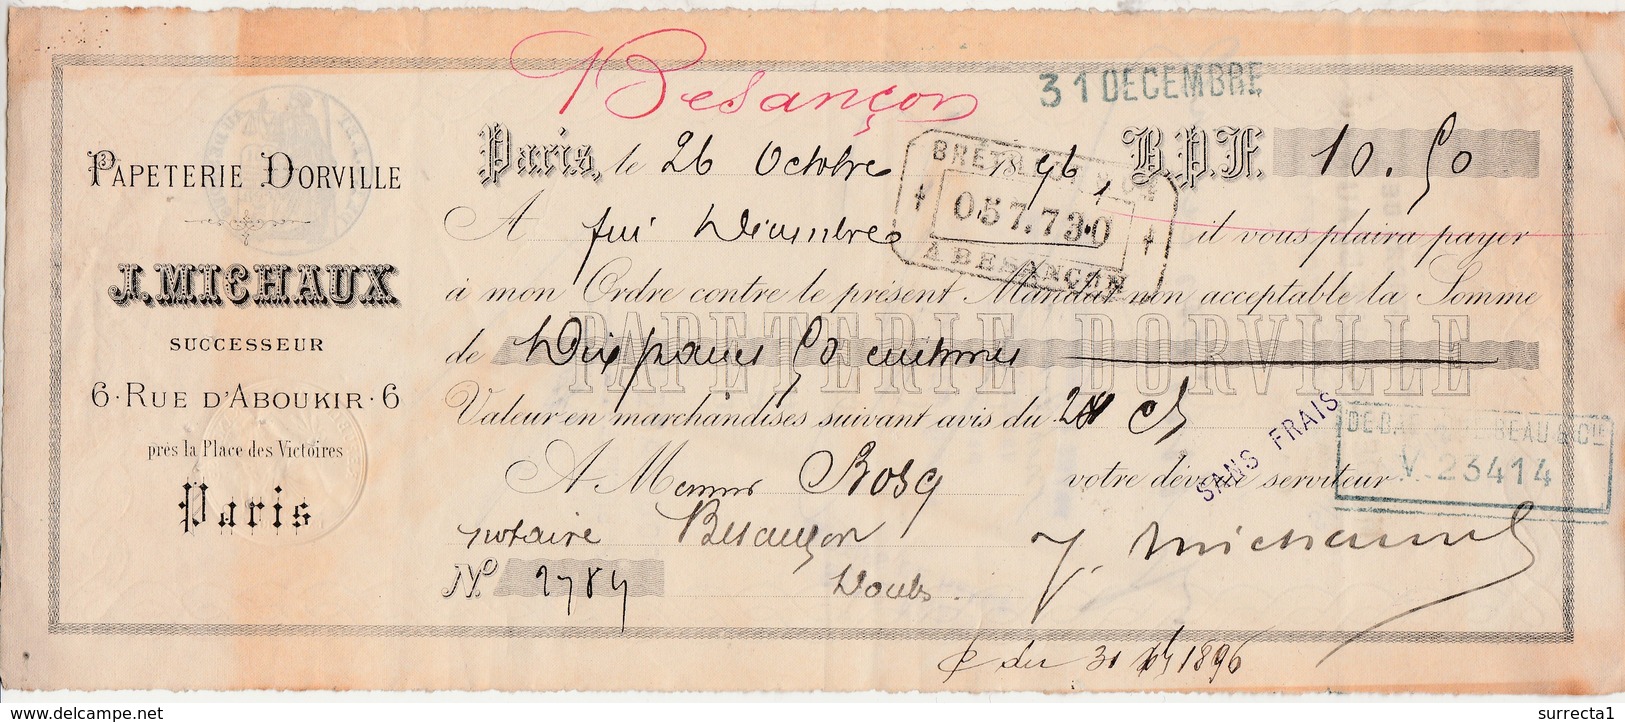 Besançon
31 DECEMBRE
PAPETERIE DORVILLE
J. MICHAUX
SUCCESSEUR
6 · RUE D'ABOUKIR · 6
près la Place des Victoires
Paris
Paris, le 26 Octobre 1896, B.P.F. 10.50
A fin Décembre il vous plaira payer
à mon Ordre contre le présent Mandat non acceptable la Somme
de Dix francs 50 centimes
PAPETERIE DORVILLE
Valeur en marchandises suivant avis du
A Monsieur Bosq votre dévoué serviteur
notaire Besançon J. Michaux
No. 2784 Doubs.
057.730
A BESANÇON
SANS FRAIS
BEAU & CIE
V. 23414
du 31 1896
www.delcampe.net
surrecta1